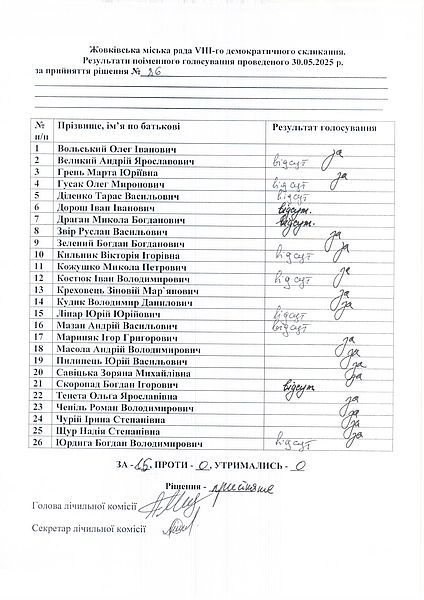 Жовківська міська рада VIII-го демократичного скликання.
Результати поіменного голосування проведеного 30.05.2025 р.
за прийняття рішення № 26
№ п/п Прізвище, ім’я по батькові Результат голосування
1 Вольський Олег Іванович за
2 Великий Андрій Ярославович відсут
3 Грень Марта Юріївна за
4 Гусак Олег Миронович відсут
5 Діденко Тарас Васильович відсут
6 Дорош Іван Іванович відсут.
7 Драган Микола Богданович відсут.
8 Звір Руслан Васильович за
9 Зелений Богдан Богданович за
10 Кильник Вікторія Ігорівна відсут
11 Кожушко Микола Петрович за
12 Костюк Іван Володимирович відсут
13 Креховець Зіновій Мар`янович за
14 Кудик Володимир Данилович за
15 Ліпар Юрій Юрійович відсут
16 Мазан Андрій Васильович відсут
17 Мариняк Ігор Григорович за
18 Масола Андрій Володимирович за
19 Пилипець Юрій Васильович за
20 Савіцька Зоряна Михайлівна за
21 Скоропад Богдан Ігорович відсут
22 Тенета Ольга Ярославівна за
23 Чепіль Роман Володимирович за
24 Чурій Ірина Степанівна за
25 Щур Надія Степанівна за
26 Юрдига Богдан Володимирович відсут
ЗА - 15, ПРОТИ - 0, УТРИМАЛИСЬ - 0
Рішення - прийняте
Голова лічильної комісії
Секретар лічильної комісії